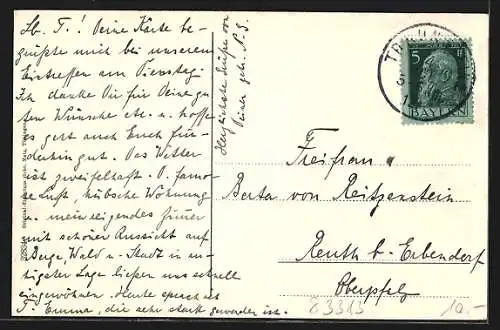 Lb. T.! Deine Karte be-
grüßte mich bei unserem
Eintreffen am Dienstag.
Ich danke Dir für Deine gu-
ten Wünsche etc. u. hoffe
es geht auch Euch für-
derhin gut. Das Wetter
ist zweifelhaft. D. famo-
se Luft, hübsche Wohnung
u. mein eigenes Zimmer
mit schöner Aussicht auf
Berge, Wald u. Stadt in
Lage ließen uns schnell
eingewöhnen. Heute sprach ich
T. Emma, die sehr stark geworden ist.
Herzlichste Grüße von
Deiner getr. N. S.
5
BAYERN
Freifrau
Berta von Reitzenstein
Reuth b. Erbendorf
Oberpfalz
C 3313
10.-